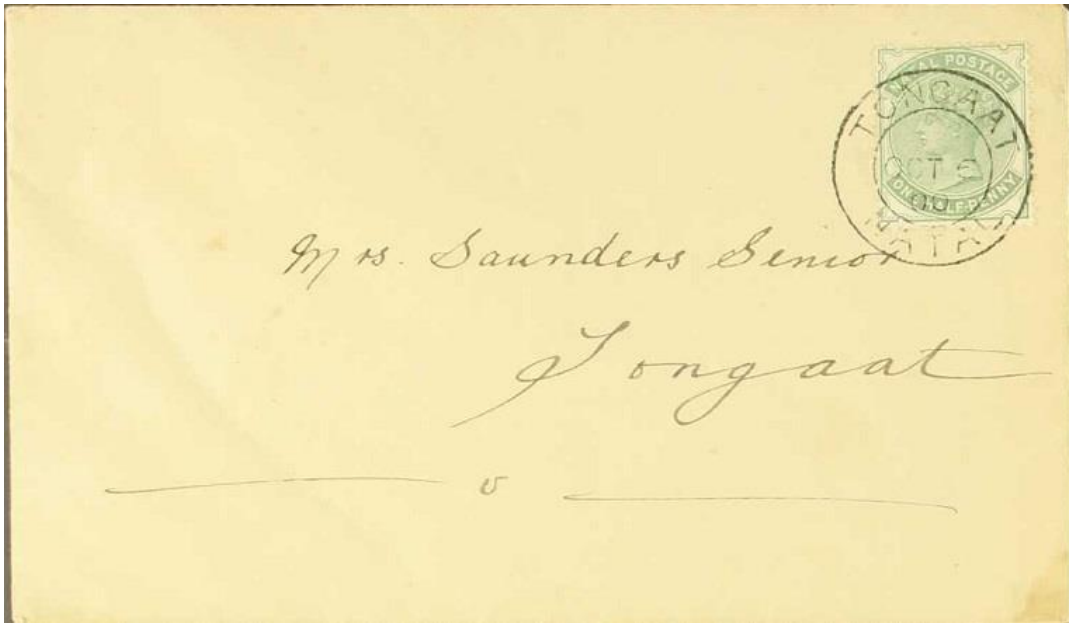 NATAL POSTAGE
ONE HALF-PENNY
TONGAAT
OCT
00
NATAL
Mrs. Saunders Senior
Tongaat